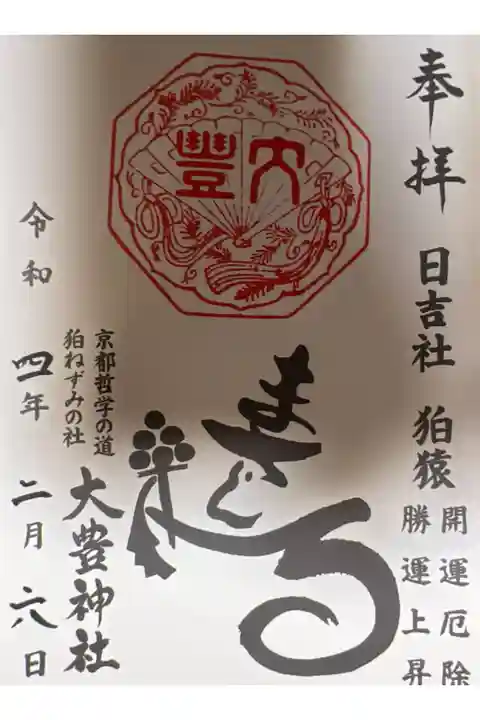 奉拝 日吉社 狛猿
開運厄除
勝運上昇
大豐
まさる
京都哲学の道
狛ねずみの社
大豊神社
令和四年二月六日